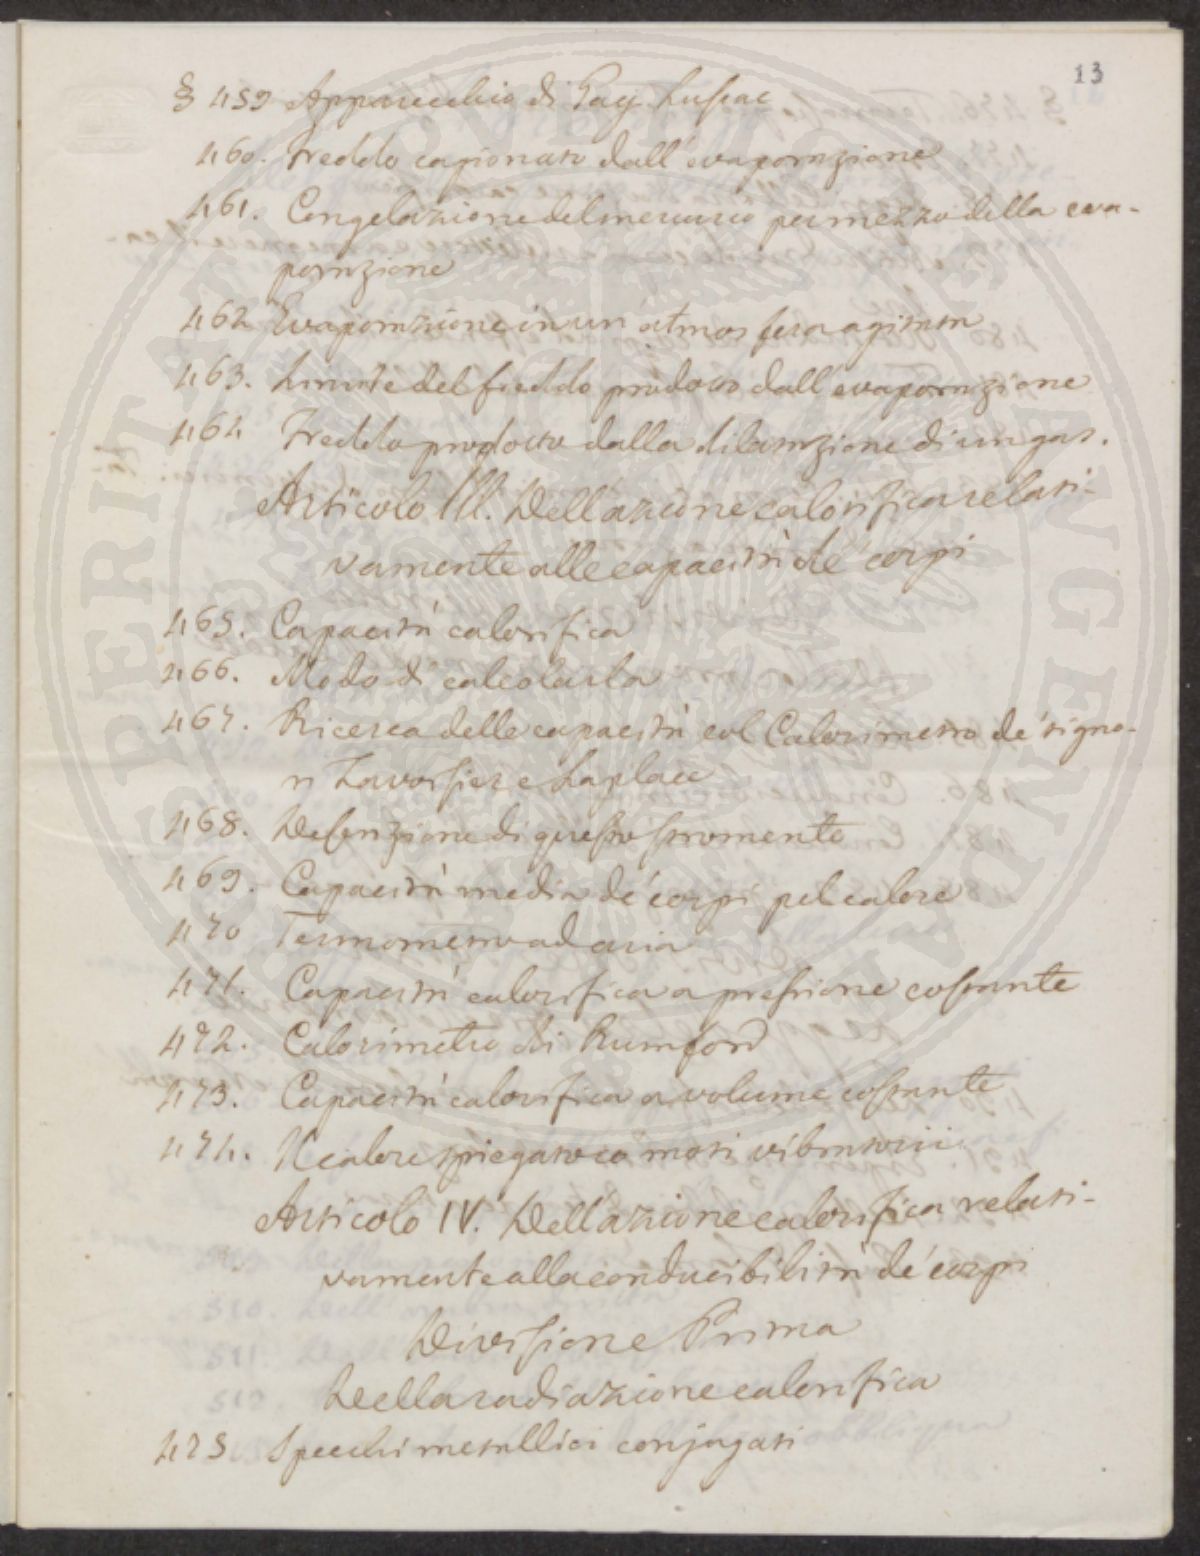 13
§ 459 Apparecchio di Gay Lussac
460. Freddo cagionato dall'evaporazione
461. Congelazione del mercurio per mezzo della eva-
porazione
462 Evaporazione in un atmosfera agitata
463. Limite del freddo prodotto dall'evaporazione
464 Freddo prodotto dalla dilatazione di un gas.
Articolo III. Dell'azione calorifica relati-
vamente alle capacità de' corpi
465. Capacità calorifica
466. Modo di calcolarla
467. Ricerca delle capacità col Calorimetro de' signo-
ri Lavoisier e Laplace
468. Descrizione di questo stromento
469. Capacità media de' corpi pel calore
470 Termometro ad aria
471. Capacità calorifica a pressione costante
472. Calorimetro di Rumford
473. Capacità calorifica a volume costante
474. Il calore spiegato co' moti vibratorii
Articolo IV. Dell'azione calorifica relati-
vamente alla conducibilità de' corpi
Divisione Prima
Della radiazione calorifica
475 Specchi metallici conjugati